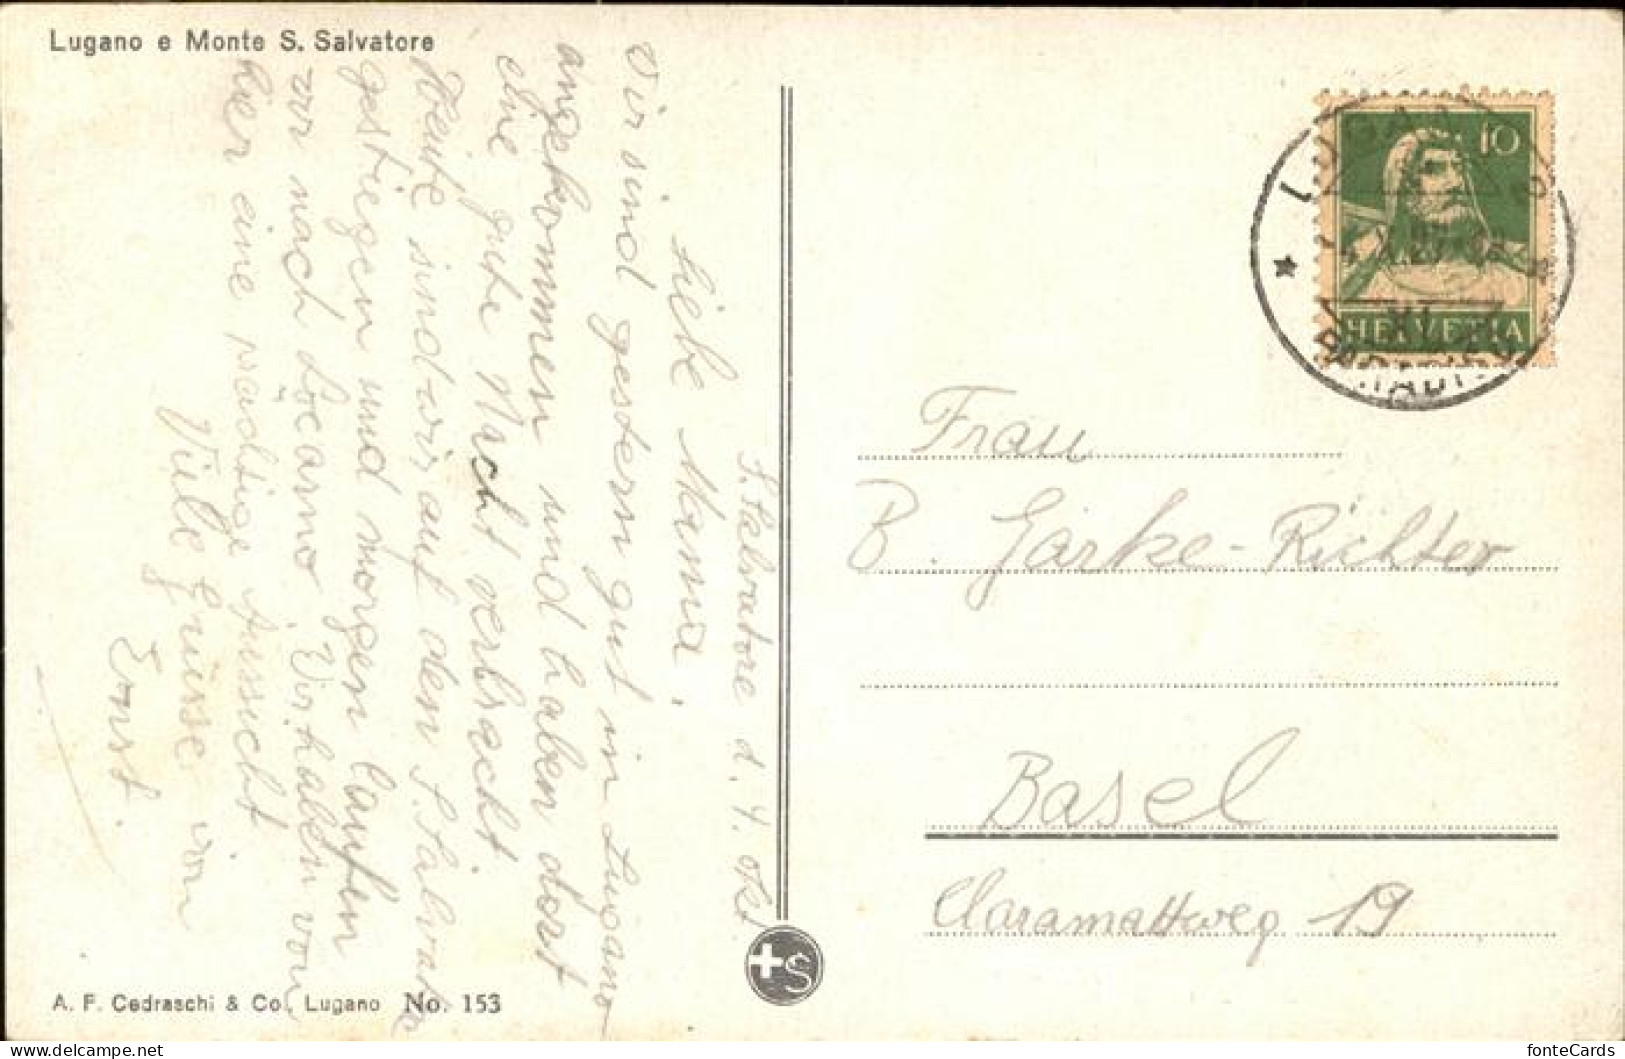 Lugano e Monte S. Salvatore
S. Salvatore d. 4. Okt.
Liebe Mamma,
Wir sind gestern gut in Lugano
angekommen und haben dort
eine gute Nacht verbracht.
Heute sind wir auf den S. Salvatore
gestiegen und morgen laufen
wir nach Locarno. Wir haben von
hier eine prächtige Aussicht
Viele Grüsse von
Ernst.
A. F. Cedraschi & Co., Lugano No. 153
+S
10
HELVETIA
LUGANO
Frau
B. Gärke-Richter
Basel
Claramattweg 19
delcampe.net
fonteCards